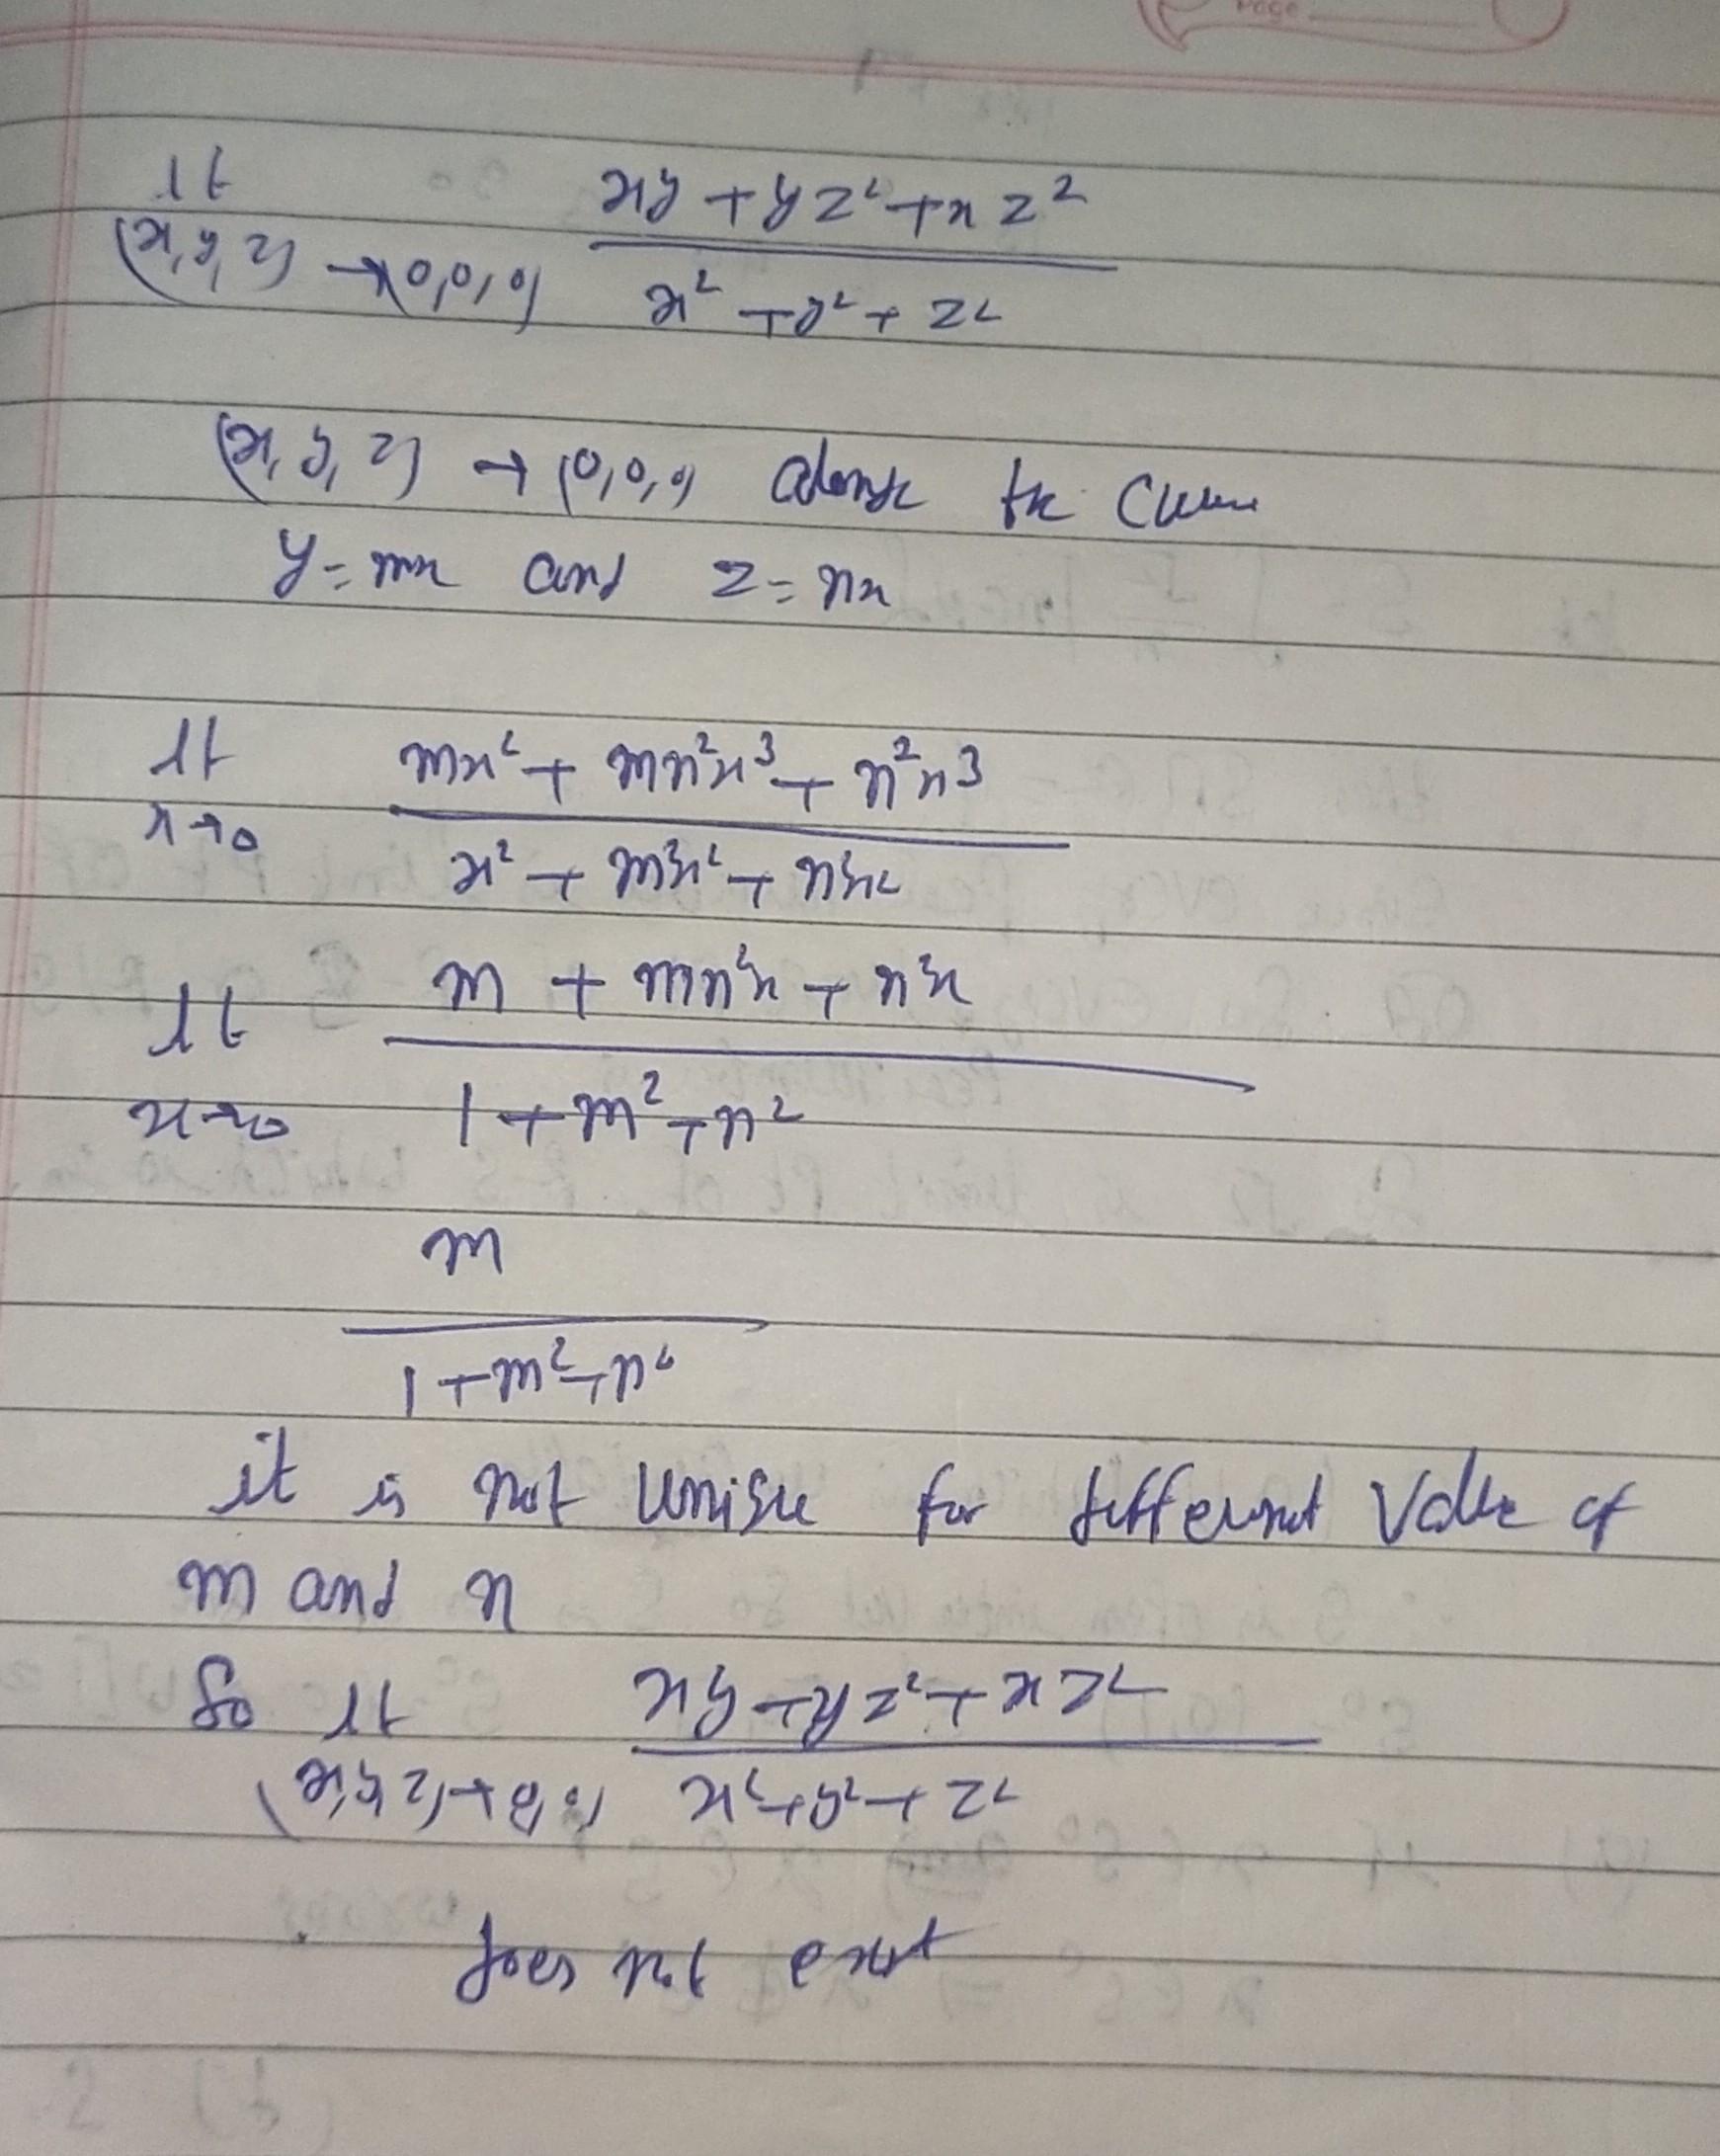 Page
lt
(x,y,z)→(0,0,0) xy + yz² + xz² / x² + y² + z²
(x,y,z) → (0,0,0) along the curve
y = mx and z = nx
lt
x→0 mx² + mn²x³ + n²x³ / x² + m²x² + n²x²
lt
x→0 m + mn²x + n²x / 1 + m² + n²
m / 1 + m² + n²
it is not unique for different value of
m and n
So lt xy + yz² + xz² / x² + y² + z²
(x,y,z)→(0,0,0)
does not exist